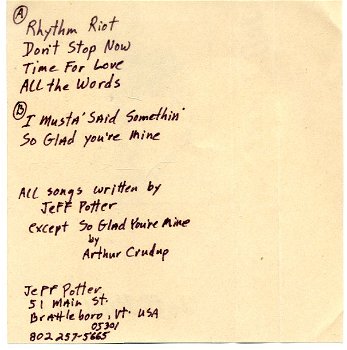 A
Rhythm Riot
Don't Stop Now
Time For Love
All the Words
B
I Musta' Said Somethin'
So Glad you're mine
All songs written by
Jeff Potter
except So Glad You're Mine
by
Arthur Crudup
Jeff Potter
51 Main St.
Brattleboro, Vt. USA
05301
802 257-5665